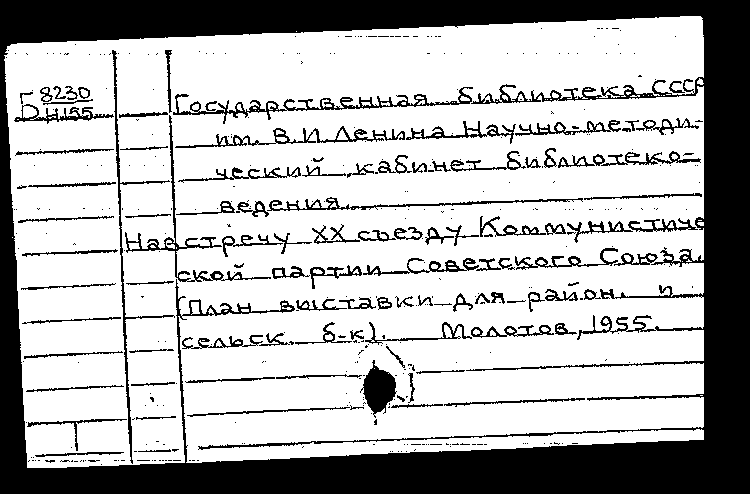 Б 8230
Н155
Государственная библиотека СССР
им. В.И. Ленина Научно-методи-
ческий кабинет библиотеко-
ведения.
Навстречу XX съезду Коммунистиче
ской партии Советского Союза.
(План выставки для район. и
сельск. б-к). Молотов, 1955.